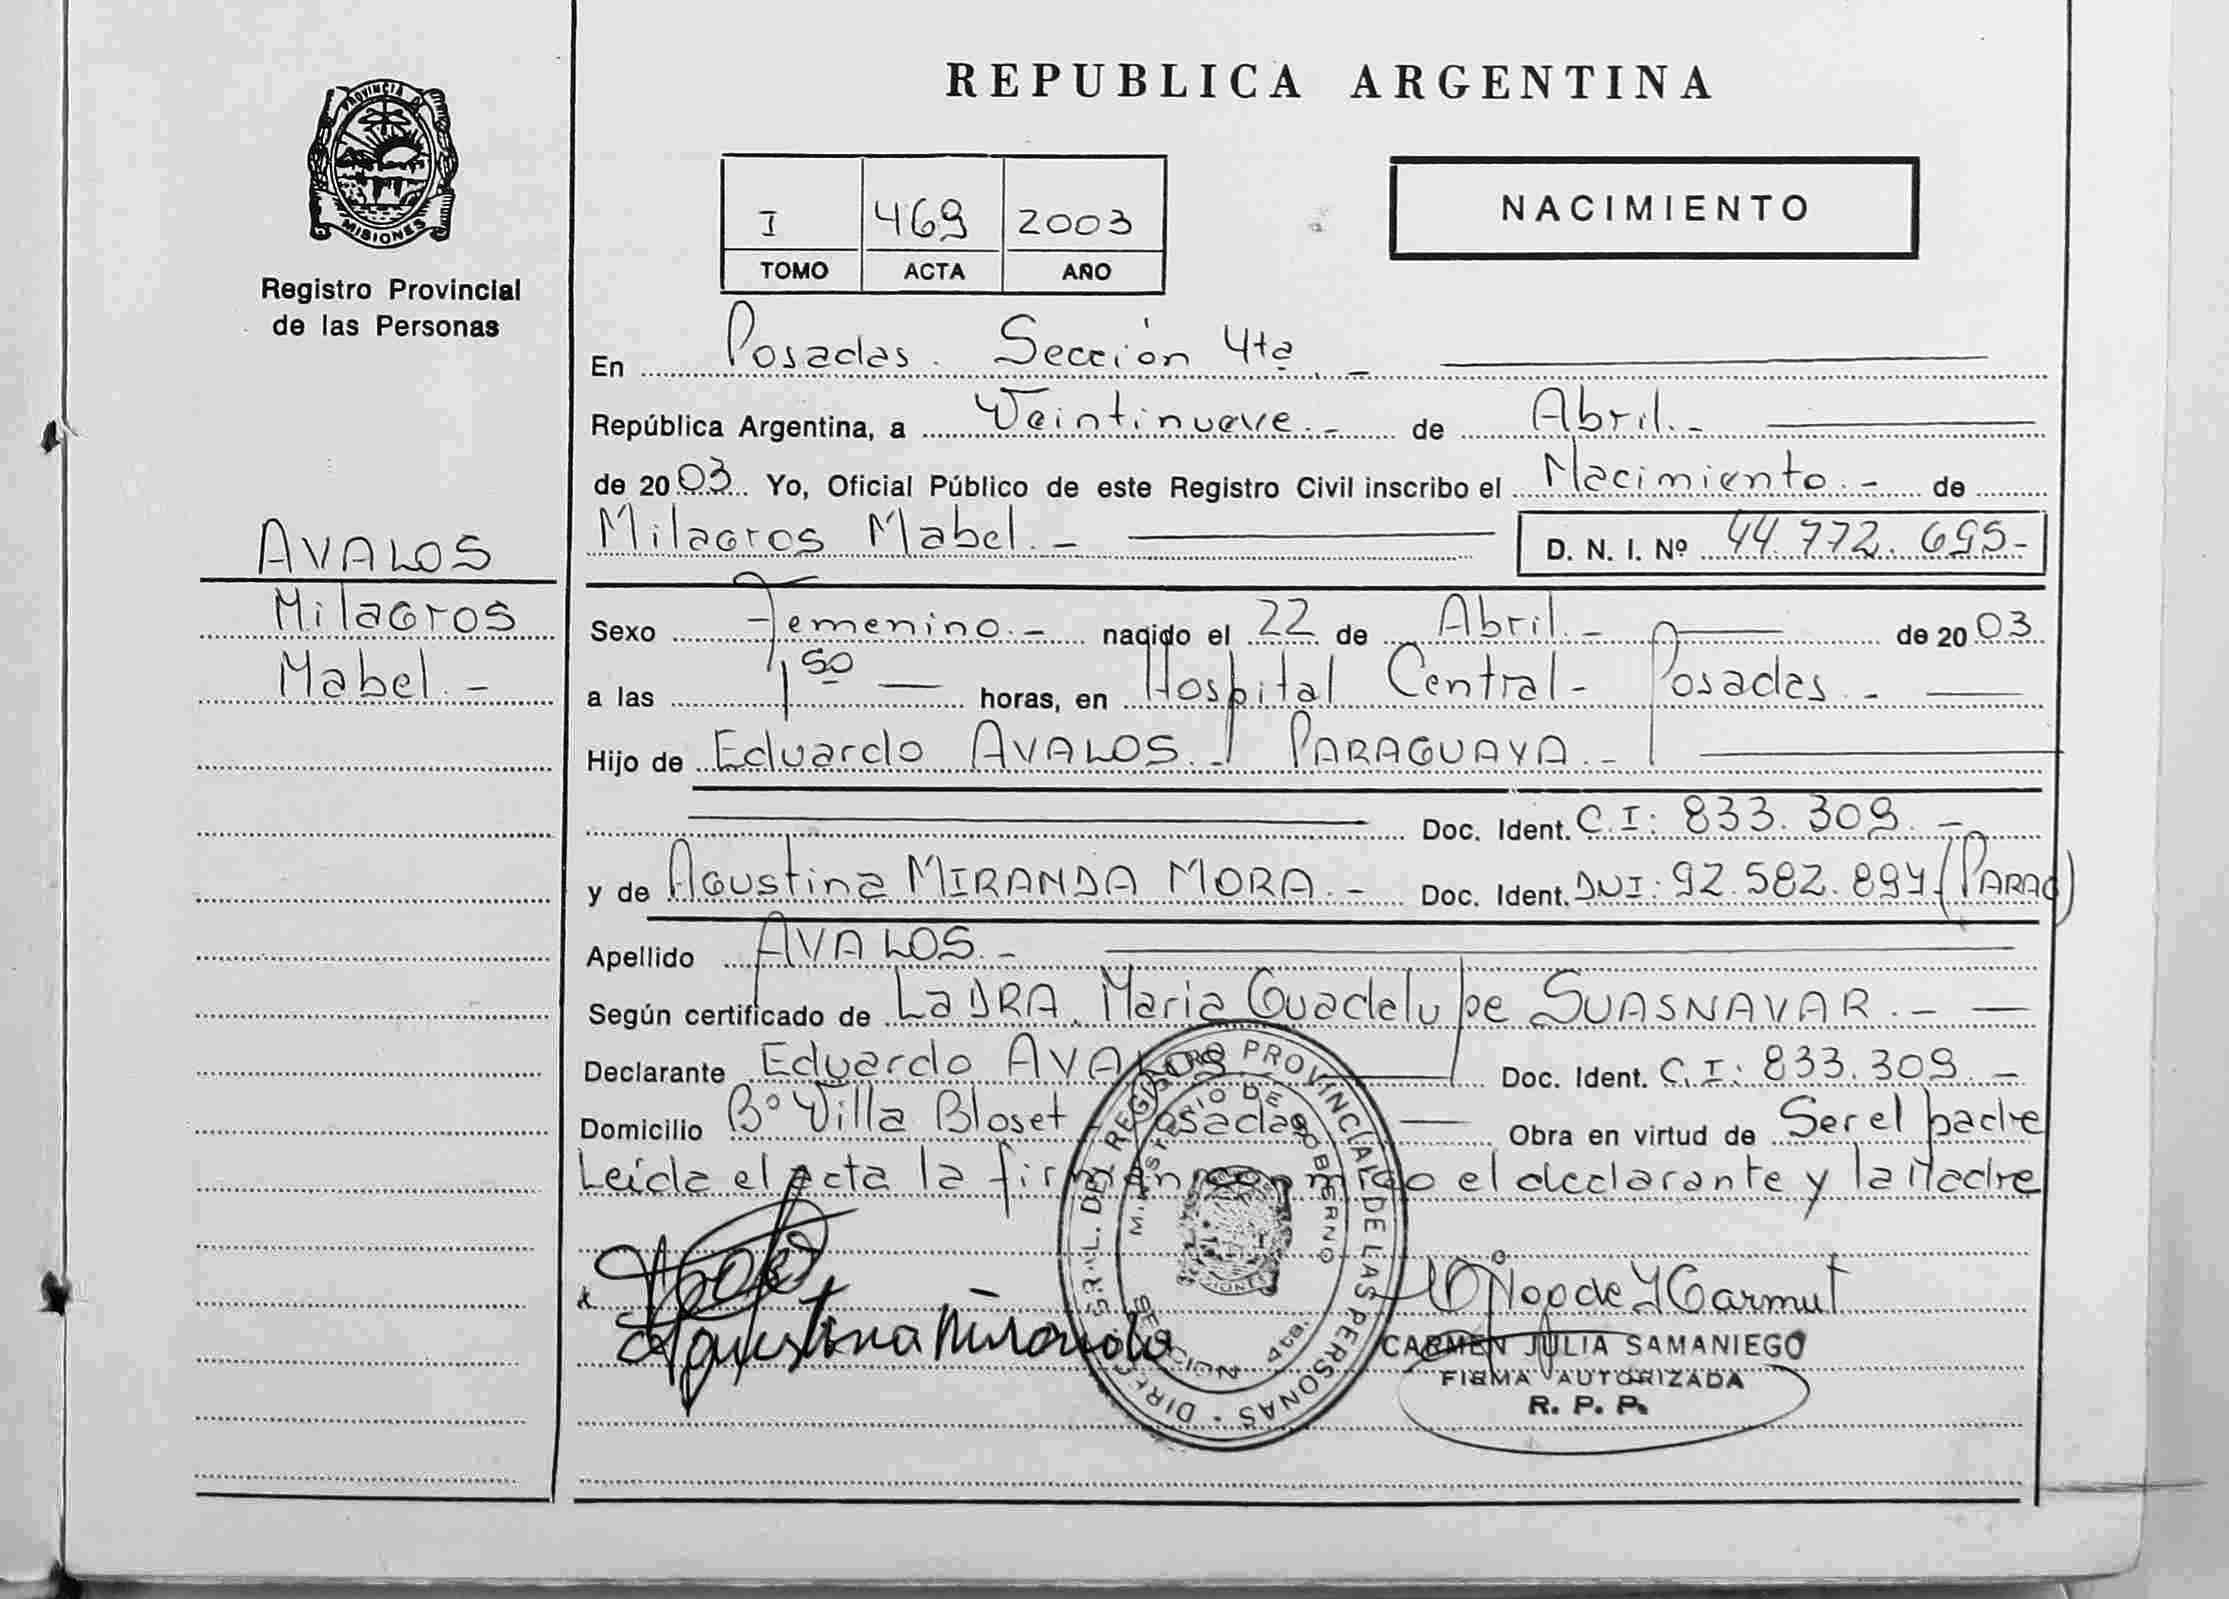 REPUBLICA ARGENTINA
PROVINCIA D
MISIONES
Registro Provincial
de las Personas
I 469 2003
TOMO ACTA AÑO
NACIMIENTO
AVALOS
Milagros
Mabel.-
En Posadas. Sección 4ta.-
República Argentina, a Veintinueve.- de Abril.-
de 2003 Yo, Oficial Público de este Registro Civil inscribo el Nacimiento.- de
Milagros Mabel.- D. N. I. Nº 44.772.695-
Sexo Femenino.- nacido el 22 de Abril.- de 2003
a las 1 50 horas, en Hospital Central- Posadas.-
Hijo de Eduardo AVALOS.- PARAGUAYA.-
Doc. Ident. C.I: 833.309.-
y de Agustina MIRANDA MORA.- Doc. Ident. DNI: 92.582.894 (PARAG)
Apellido AVALOS.-
Según certificado de La DRA. Maria Guadalupe SUASNAVAR.-
Declarante Eduardo AVALOS Doc. Ident. C.I: 833.309.-
Domicilio Bº Villa Bloset Posadas Obra en virtud de Ser el padre
Leída el acta la firman conmigo el declarante y la Madre
Agustina Miranda
DIREC. GRAL. DEL REGISTRO PROVINCIAL DE LAS PERSONAS
MINISTERIO DE GOBIERNO
SECCION 4ta.
CARMEN JULIA SAMANIEGO
FIRMA AUTORIZADA
R. P. P.